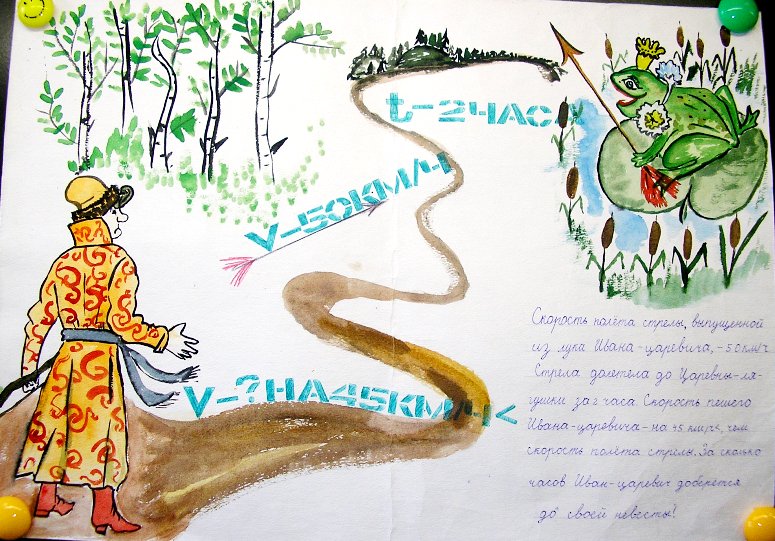 t-2ЧАСА
V-50КМ/Ч
V-?НА45КМ/Ч<
Скорость полёта стрелы, выпущенной
из лука Ивана-царевича,-50км/ч
Стрела долетела до Царевны-ля-
гушки за 2 часа. Скорость пешего
Ивана-царевича-на 45 км/ч, чем
скорость полёта стрелы. За сколько
часов Иван-царевич доберётся
до своей невесты?